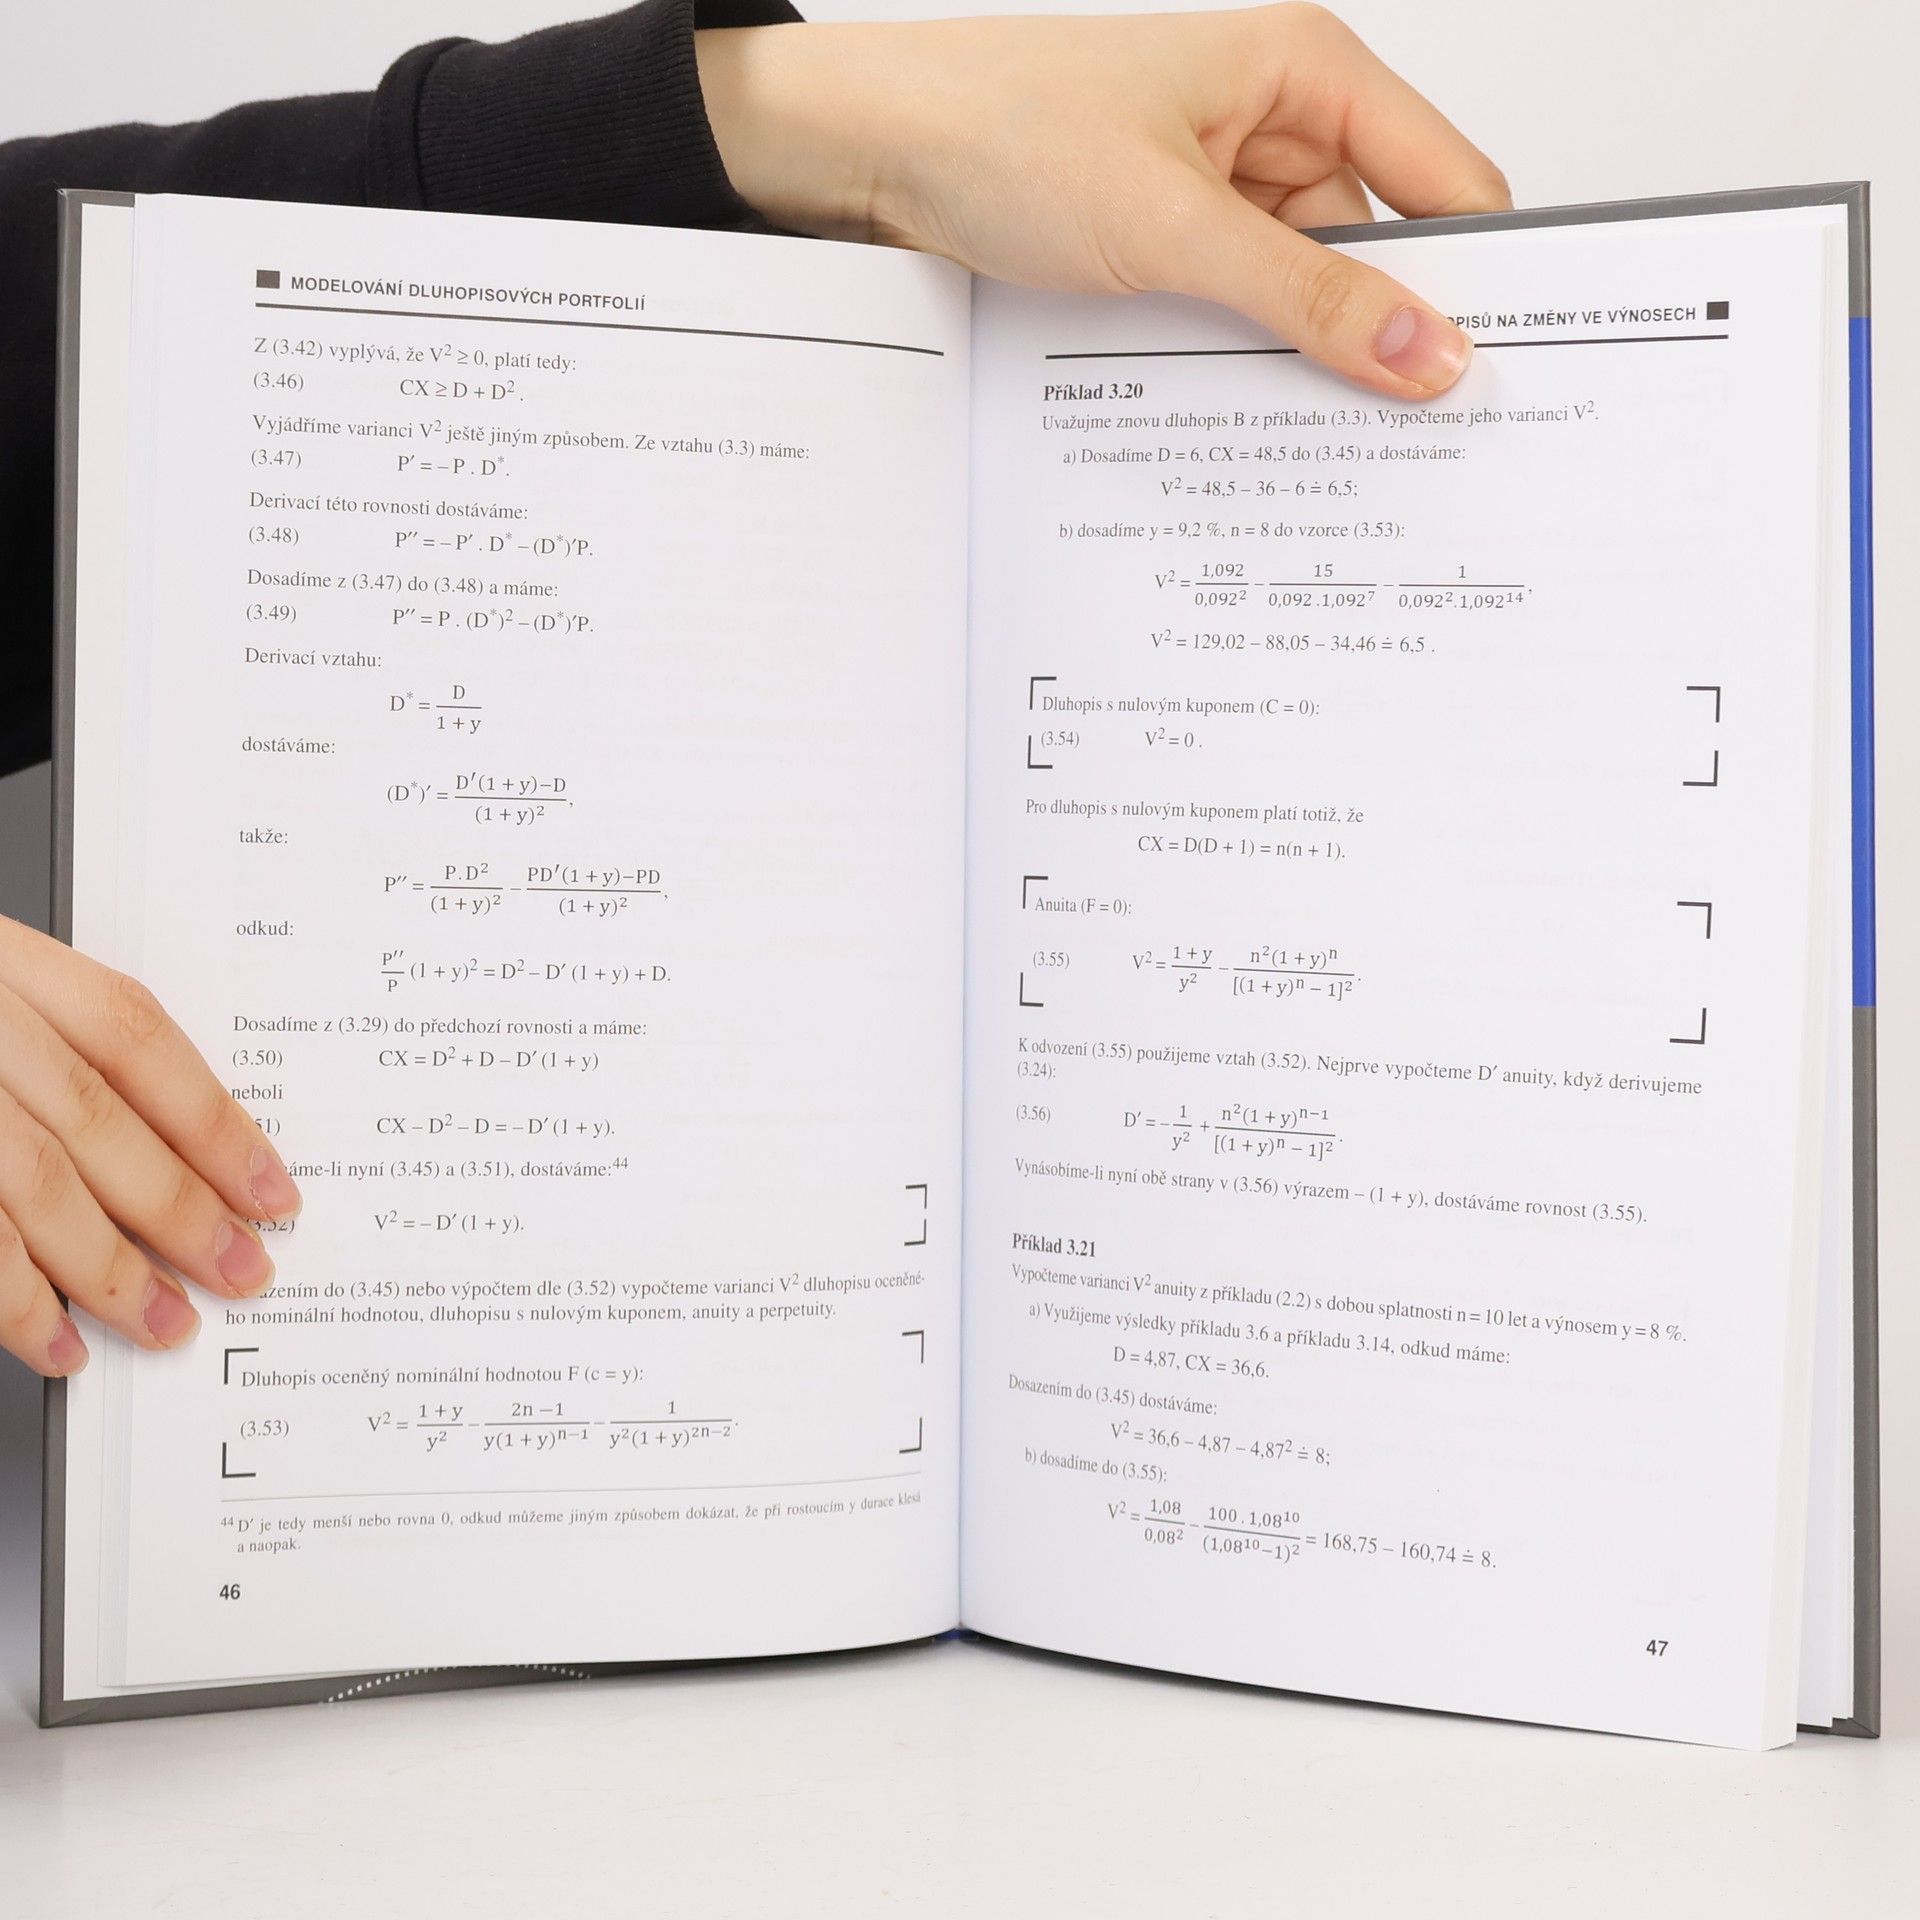 MODELOVÁNÍ DLUHOPISOVÝCH PORTFOLIÍ
Z (3.42) vyplývá, že V² ≥ 0, platí tedy:
(3.46) CX ≥ D + D² .
Vyjádříme varianci V² ještě jiným způsobem. Ze vztahu (3.3) máme:
(3.47) P′ = – P . D*.
Derivací této rovnosti dostáváme:
(3.48) P′′ = – P′ . D* – (D*)′P.
Dosadíme z (3.47) do (3.48) a máme:
(3.49) P′′ = P . (D*)² – (D*)′P.
Derivací vztahu:
D* = D / (1 + y)
dostáváme:
(D*)′ = (D′(1 + y)–D) / (1 + y)²,
takže:
P′′ = P.D² / (1 + y)² – (PD′(1 + y)–PD) / (1 + y)²,
odkud:
P′′/P (1 + y)² = D² – D′ (1 + y) + D.
Dosadíme z (3.29) do předchozí rovnosti a máme:
(3.50) CX = D² + D – D′ (1 + y)
neboli
51) CX – D² – D = – D′ (1 + y).
áme-li nyní (3.45) a (3.51), dostáváme:⁴⁴
(3.52) V² = – D′ (1 + y).
azením do (3.45) nebo výpočtem dle (3.52) vypočteme varianci V² dluhopisu oceněné-
ho nominální hodnotou, dluhopisu s nulovým kuponem, anuity a perpetuity.
Dluhopis oceněný nominální hodnotou F (c = y):
(3.53) V² = (1 + y) / y² – (2n –1) / (y(1 + y)ⁿ⁻¹) – 1 / (y²(1 + y)²ⁿ⁻²).
⁴⁴ D′ je tedy menší nebo rovna 0, odkud můžeme jiným způsobem dokázat, že při rostoucím y durace klesá
a naopak.
46
OPISŮ NA ZMĚNY VE VÝNOSECH
Příklad 3.20
Uvažujme znovu dluhopis B z příkladu (3.3). Vypočteme jeho varianci V².
a) Dosadíme D = 6, CX = 48,5 do (3.45) a dostáváme:
V² = 48,5 – 36 – 6 ≐ 6,5;
b) dosadíme y = 9,2 %, n = 8 do vzorce (3.53):
V² = 1,092 / 0,092² – 15 / (0,092 .1,092⁷) – 1 / (0,092².1,092¹⁴),
V² = 129,02 – 88,05 – 34,46 ≐ 6,5 .
Dluhopis s nulovým kuponem (C = 0):
(3.54) V² = 0 .
Pro dluhopis s nulovým kuponem platí totiž, že
CX = D(D + 1) = n(n + 1).
Anuita (F = 0):
(3.55) V² = (1 + y) / y² – n²(1 + y)ⁿ / [(1 + y)ⁿ – 1]².
K odvození (3.55) použijeme vztah (3.52). Nejprve vypočteme D′ anuity, když derivujeme
(3.24):
(3.56) D′ = – 1 / y² + n²(1 + y)ⁿ⁻¹ / [(1 + y)ⁿ – 1]².
Vynásobíme-li nyní obě strany v (3.56) výrazem – (1 + y), dostáváme rovnost (3.55).
Příklad 3.21
Vypočteme varianci V² anuity z příkladu (2.2) s dobou splatnosti n = 10 let a výnosem y = 8 %.
a) Využijeme výsledky příkladu 3.6 a příkladu 3.14, odkud máme:
D = 4,87, CX = 36,6.
Dosazením do (3.45) dostáváme:
V² = 36,6 – 4,87 – 4,87² ≐ 8;
b) dosadíme do (3.55):
V² = 1,08 / 0,08² – 100 . 1,08¹⁰ / (1,08¹⁰–1)² = 168,75 – 160,74 ≐ 8.
47